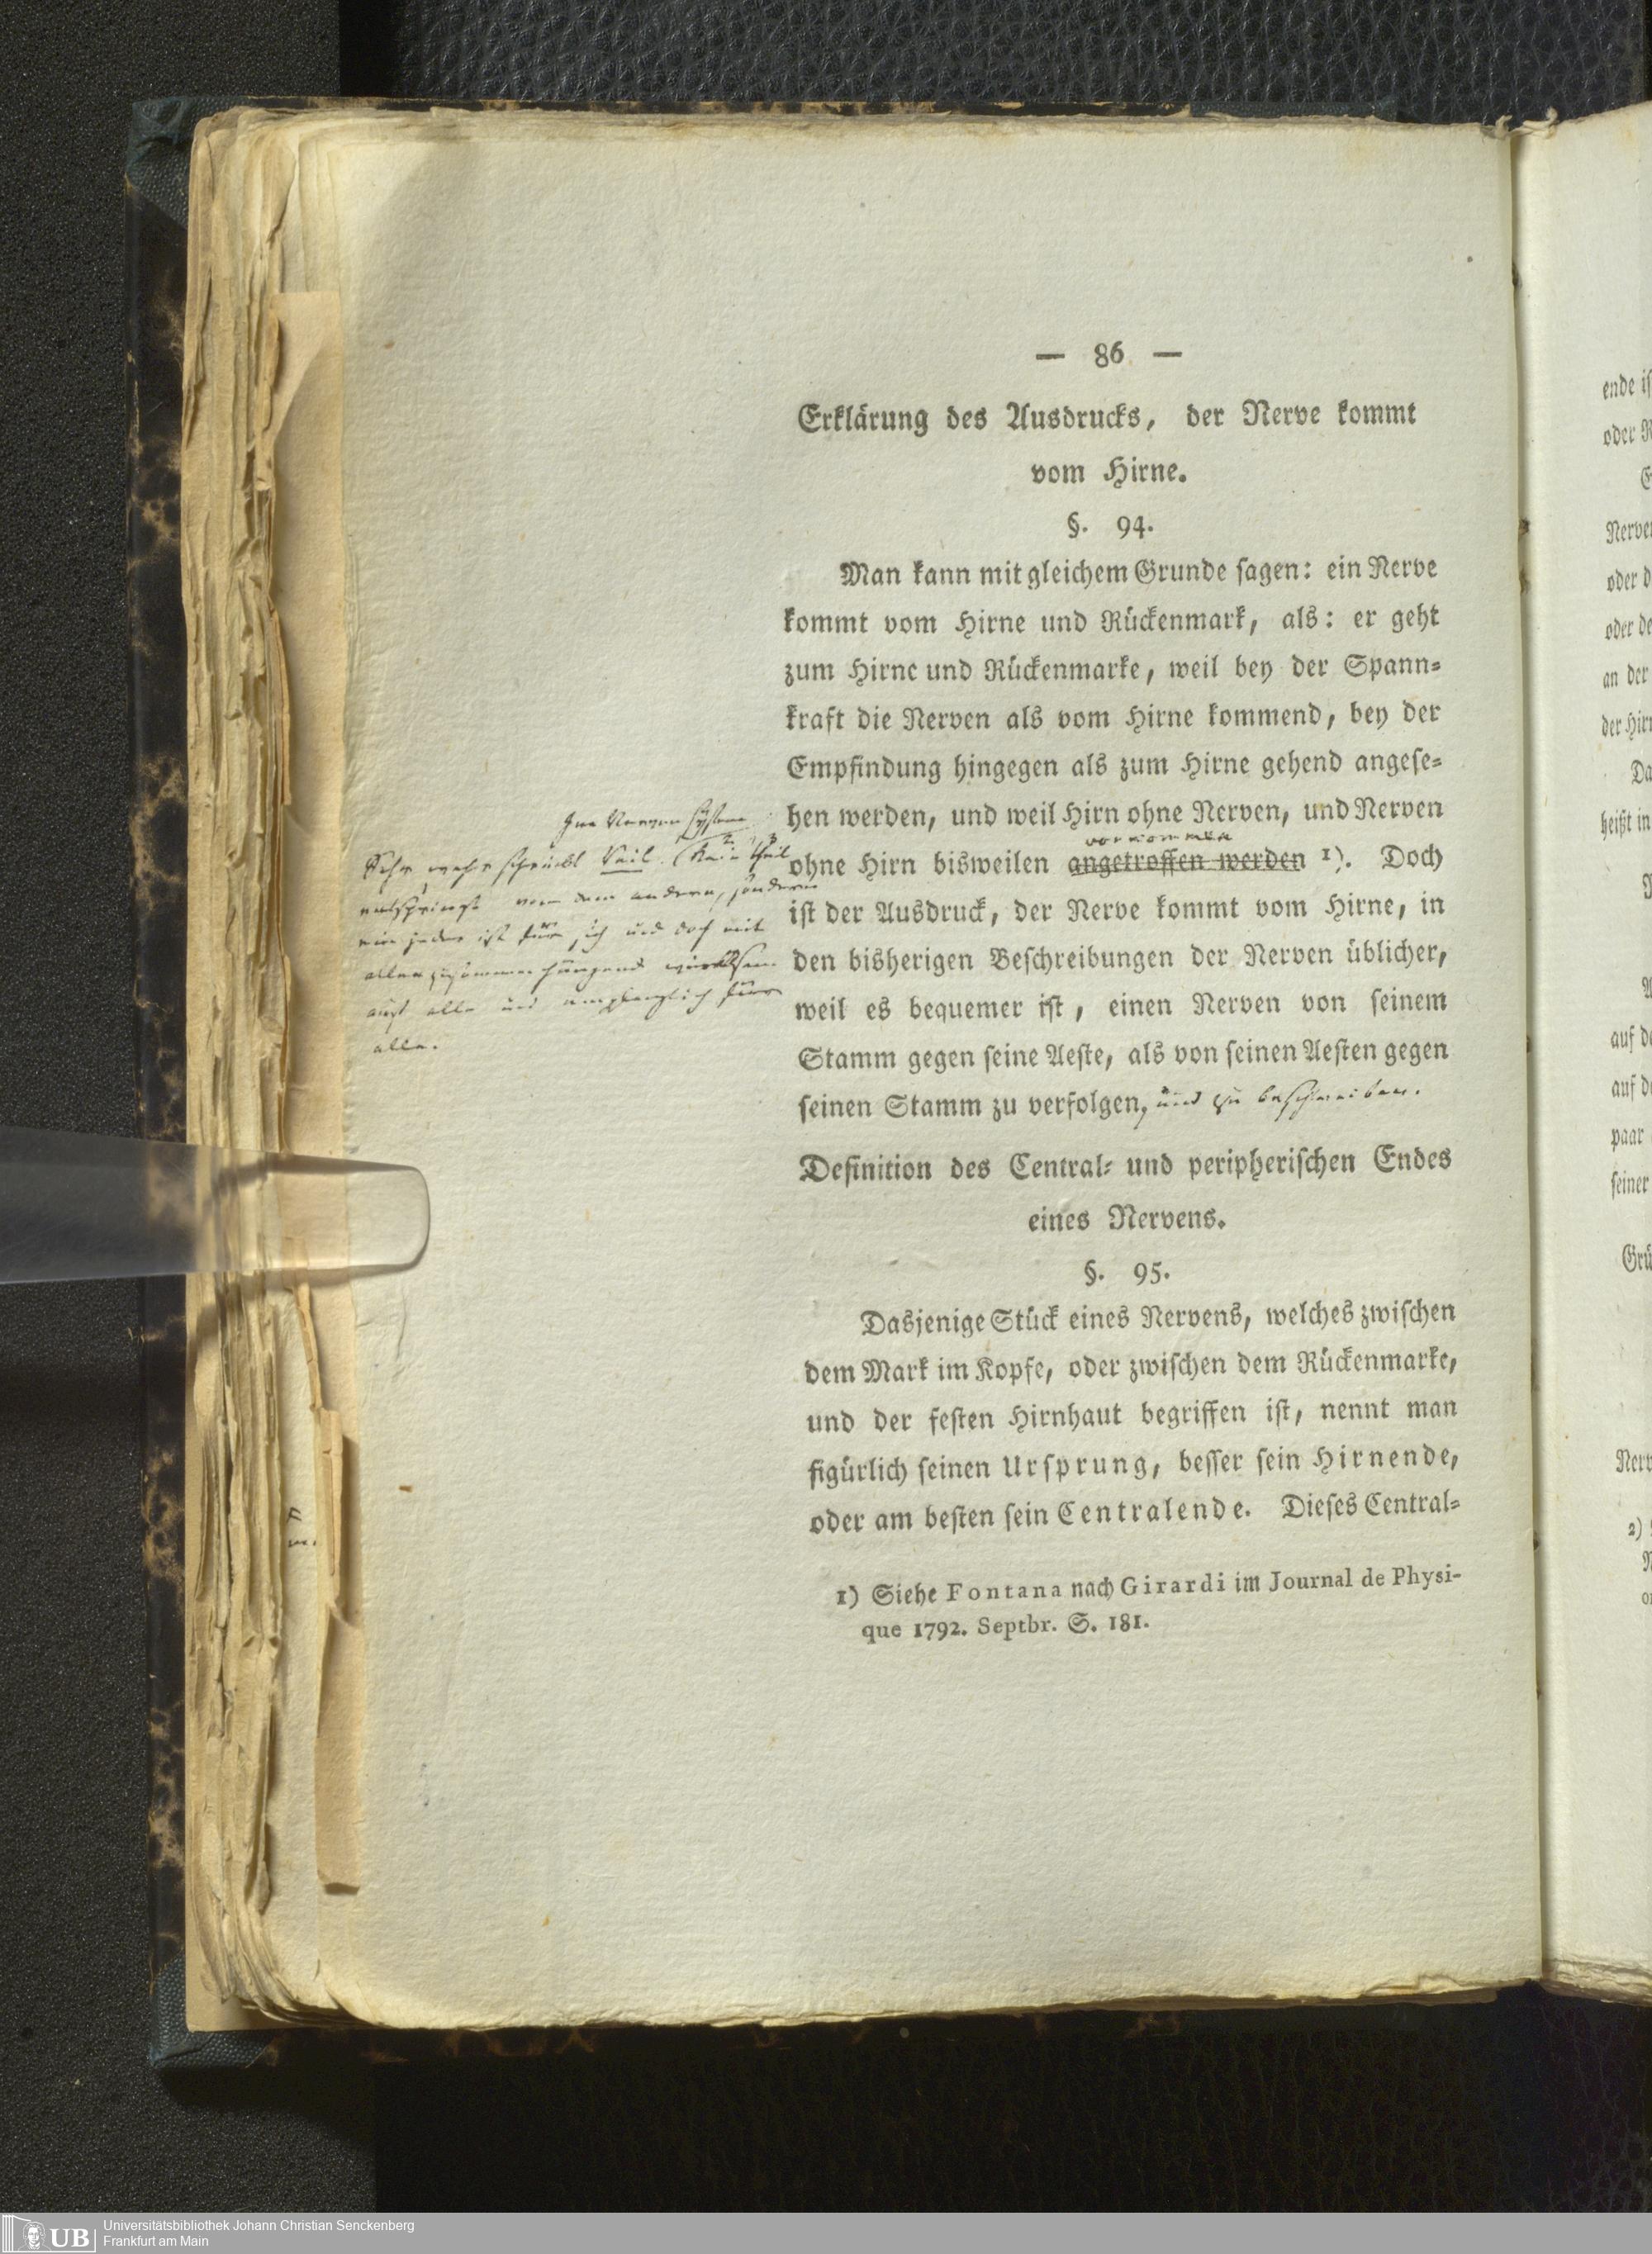 — 86 —
Erklärung des Ausdrucks, der Nerve kommt
vom Hirne.
§. 94.
Man kann mit gleichem Grunde ſagen: ein Nerve
kommt vom Hirne und Rückenmark, als: er geht
zum Hirne und Rückenmarke, weil bey der Spann-
kraft die Nerven als vom Hirne kommend, bey der
Empfindung hingegen als zum Hirne gehend angeſe-
hen werden, und weil Hirn ohne Nerven, und Nerven
vorkommen
ohne Hirn bisweilen angetroffen werden 1). Doch
iſt der Ausdruck, der Nerve kommt vom Hirne, in
den bisherigen Beſchreibungen der Nerven üblicher,
weil es bequemer iſt, einen Nerven von ſeinem
Stamm gegen ſeine Aeſte, als von ſeinen Aeſten gegen
ſeinen Stamm zu verfolgen, und zu beſchreiben.
Im Nerven Syſteme
Sehr wahr ſchreibt Reil. Kein Theil
entſpringt von dem andern, ſondern
ein jeder iſt für ſich und doch mit
allen zuſammenhängend
auf alle und empfänglich für
alle.
Definition des Central- und peripheriſchen Endes
eines Nervens.
§. 95.
Dasjenige Stück eines Nervens, welches zwiſchen
dem Mark im Kopfe, oder zwiſchen dem Rückenmarke,
und der feſten Hirnhaut begriffen iſt, nennt man
figürlich ſeinen Urſprung, beſſer ſein Hirnende,
oder am beſten ſein Centralende. Dieſes Central-
1) Siehe Fontana nach Girardi im Journal de Physi-
que 1792. Septbr. S. 181.
ende
oder
oder
an der
auf
auf
paar
ſeiner
2)
UB
Universitätsbibliothek Johann Christian Senckenberg
Frankfurt am Main